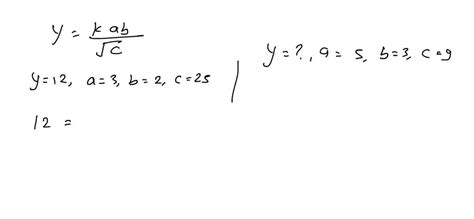 y = k ab / √c
y=12, a=3, b=2, c=25
12 =
y=?, a= 5, b=3, c=9